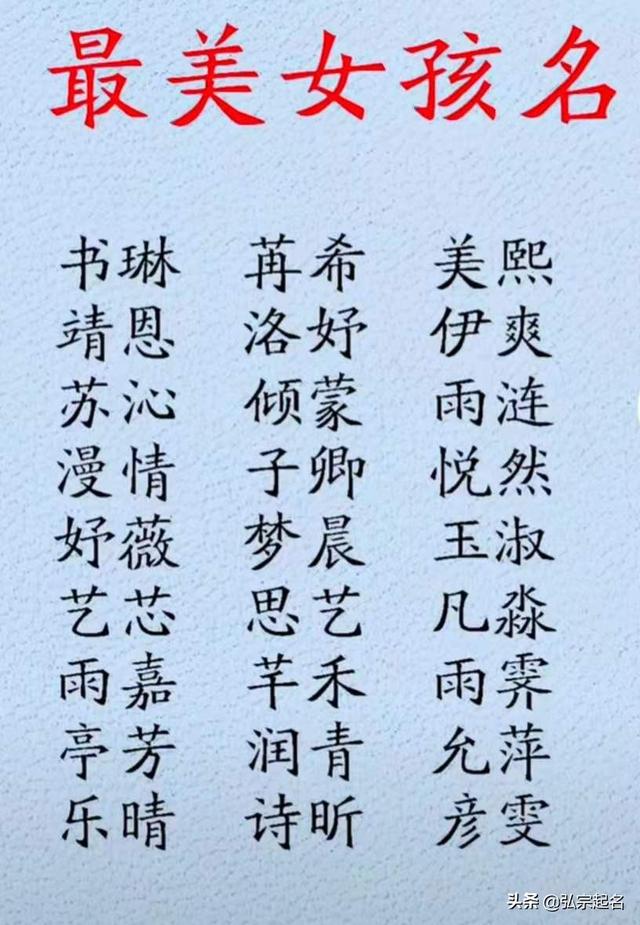 最美女孩名
书琳 苒希 美熙
靖恩 洛妤 伊爽
苏沁 倾蒙 雨涟
漫情 子卿 悦然
妤薇 梦晨 玉淑
艺芯 思艺 凡淼
雨嘉 芊禾 雨霁
亭芳 润青 允萍
乐晴 诗昕 彦雯
头条 @弘宗起名